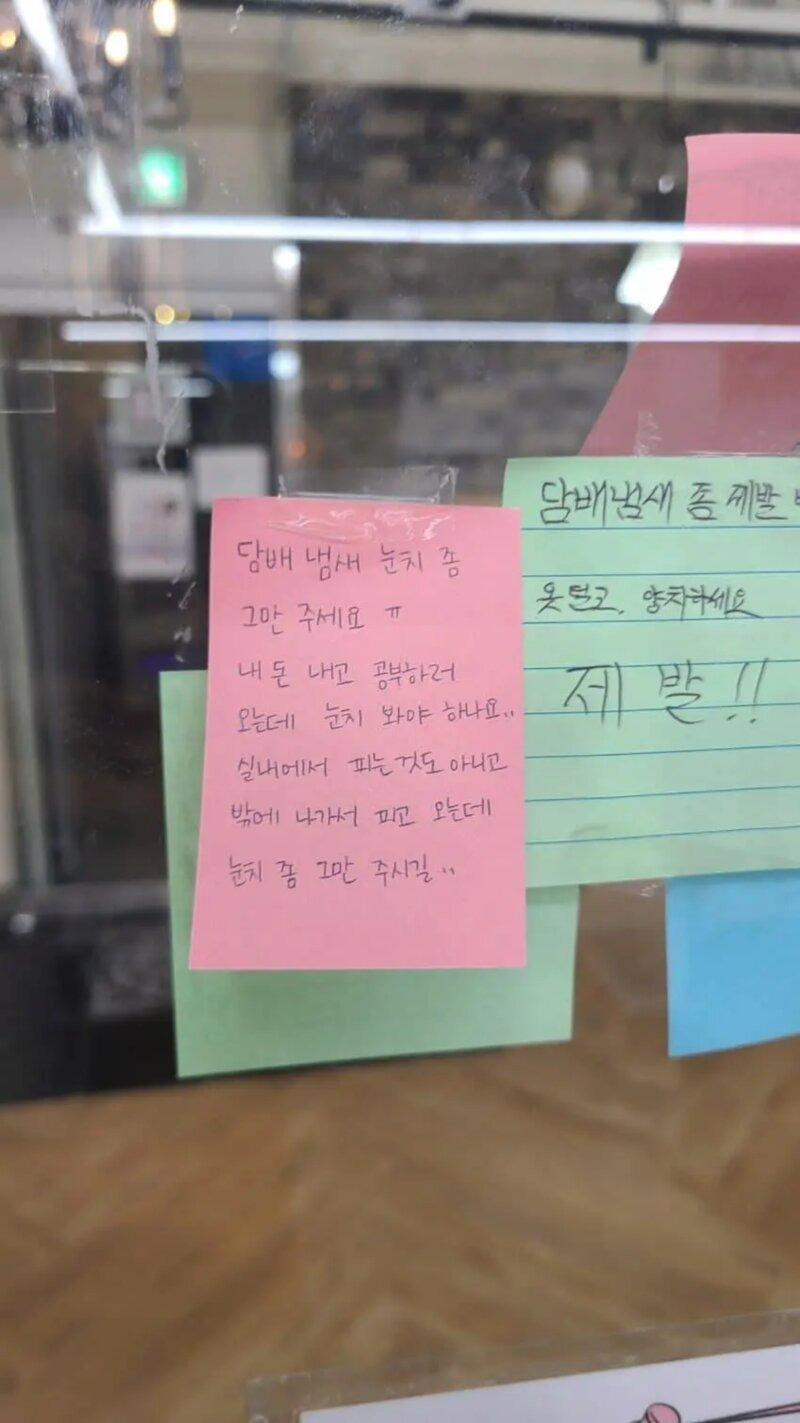 담배 냄새 눈치 좀
그만 주세요 ㅠ
내 돈 내고 공부하러
오는데 눈치 봐야 하나요..
실내에서 피는것도 아니고
밖에 나가서 피고 오는데
눈치 좀 그만 주시길..
담배냄새 좀 제발
옷털고, 양치하세요
제발!!